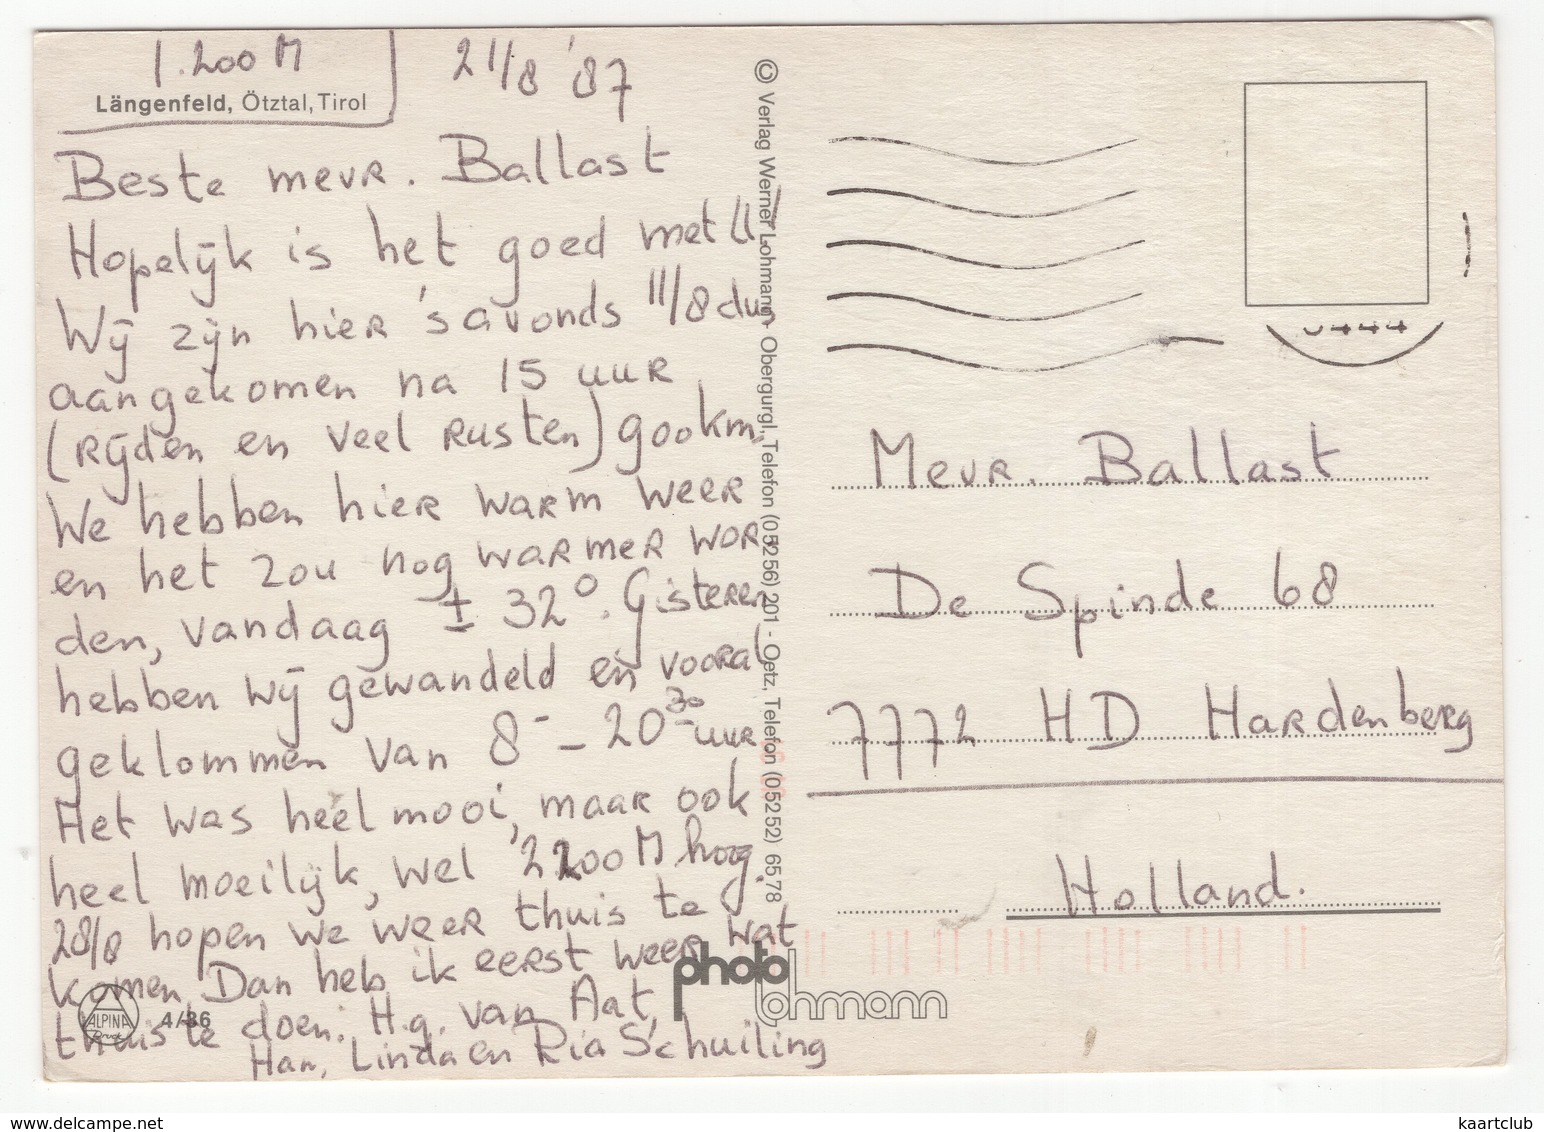 1.200 M
Längenfeld, Ötztal, Tirol
21/8 '87
Beste mevr. Ballast
Hopelijk is het goed met U!
Wij zijn hier 's avonds 11/8 dus
aangekomen na 15 uur
(rijden en veel rusten) 900 km.
We hebben hier warm weer
en het zou nog warmer wor-
den, vandaag ± 32°. Gisteren
hebben wij gewandeld en vooral
geklommen van 8 - 20 30 uur
Het was heel mooi, maar ook
heel moeilijk, wel 2200 M hoog.
28/8 hopen we weer thuis te
komen. Dan heb ik eerst weer wat
thuis te doen. H.g. van Aat,
Han, Linda en Ria Schuiling
ALPINA
Druck
4/86
© Verlag Werner Lohmann · Obergurgl, Telefon (05256) 201 - Oetz, Telefon (05252) 6578
photo
lohmann
Mevr. Ballast
De Spinde 68
7772 HD Hardenberg
Holland.
www.delcampe.net
kaartclub